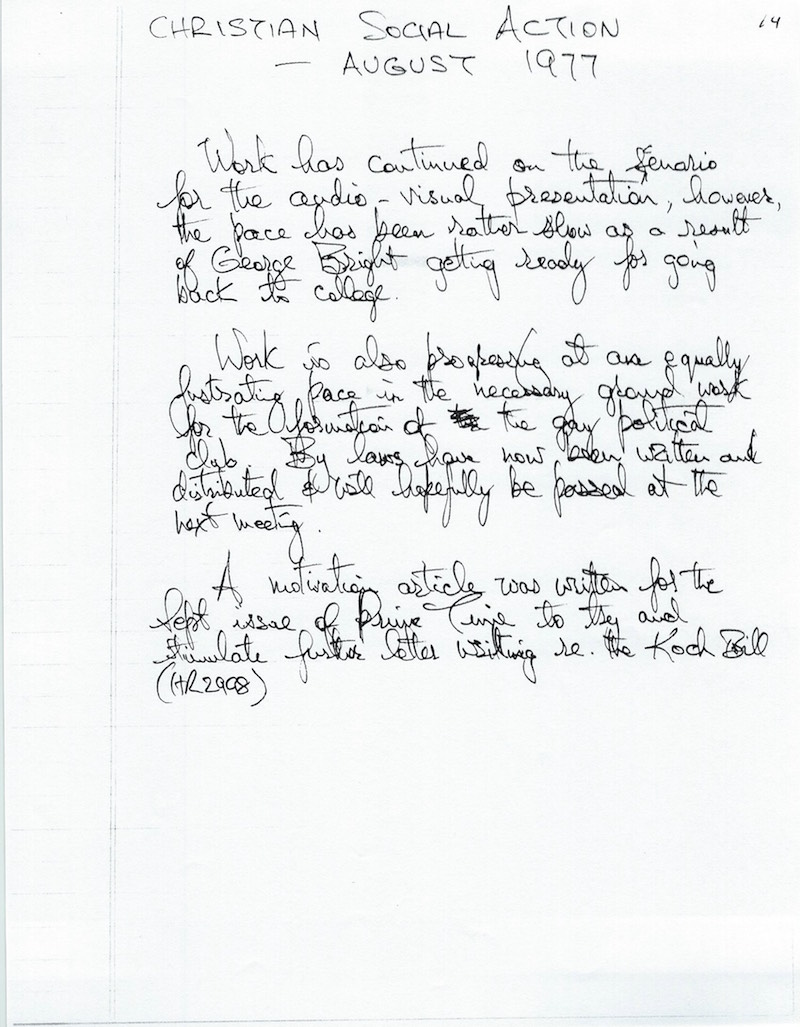 14
CHRISTIAN SOCIAL ACTION
— AUGUST 1977
Work has continued on the Senario
for the audio-visual presentation, however,
the pace has been rather slow as a result
of George Bright getting ready for going
back to college.
Work is also progressing at an equally
fustrating pace in the necessary ground work
for the formation of the gay political
club. By laws have now been written and
distributed & will hopefully be passed at the
next meeting.
A motivation article was written for the
Sept issue of Prime Time to try and
stimulate further letter writing re. the Koch Bill
(HR2998)